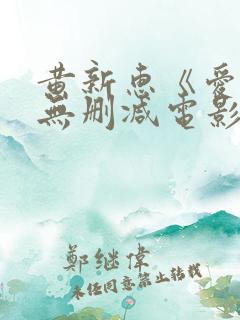 黄新惠《爱
無删减電影
鄭继偉
未任同意禁止转载